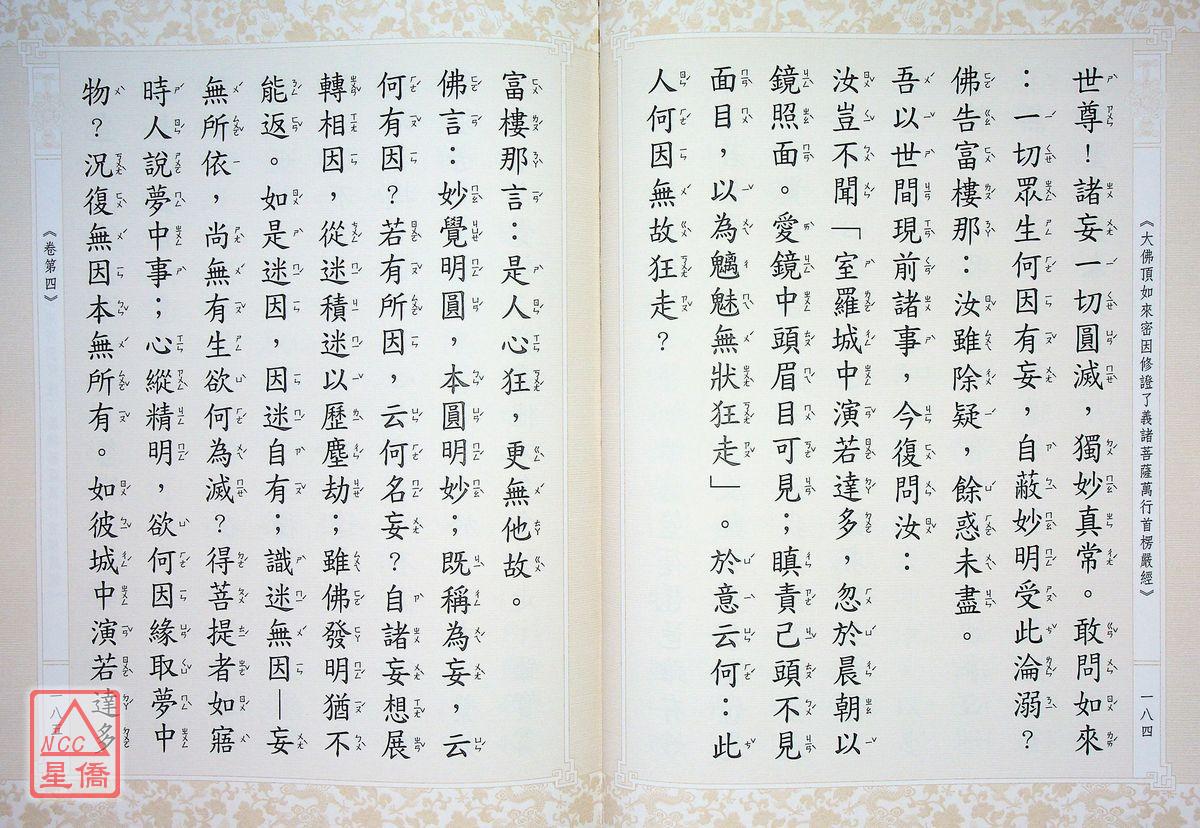 《大佛頂如來密因修證了義諸菩薩萬行首楞嚴經》
一八四
世尊！諸妄一切圓滅，獨妙真常。敢問如來
：一切眾生何因有妄，自蔽妙明受此淪溺？
佛告富樓那：汝雖除疑，餘惑未盡。
吾以世間現前諸事，今復問汝：
汝豈不聞「室羅城中演若達多，忽於晨朝以
鏡照面。愛鏡中頭眉目可見；瞋責己頭不見
面目，以為魑魅無狀狂走」。於意云何：此
人何因無故狂走？
富樓那言：是人心狂，更無他故。
佛言：妙覺明圓，本圓明妙；既稱為妄，云
何有因？若有所因，云何名妄？自諸妄想展
轉相因，從迷積迷以歷塵劫；雖佛發明猶不
能返。如是迷因，因迷自有；識迷無因—妄
無所依，尚無有生欲何為滅？得菩提者如寤
時人說夢中事；心縱精明，欲何因緣取夢中
物？況復無因本無所有。如彼城中演若達多
《卷第四》
一八五
NCC
星僑